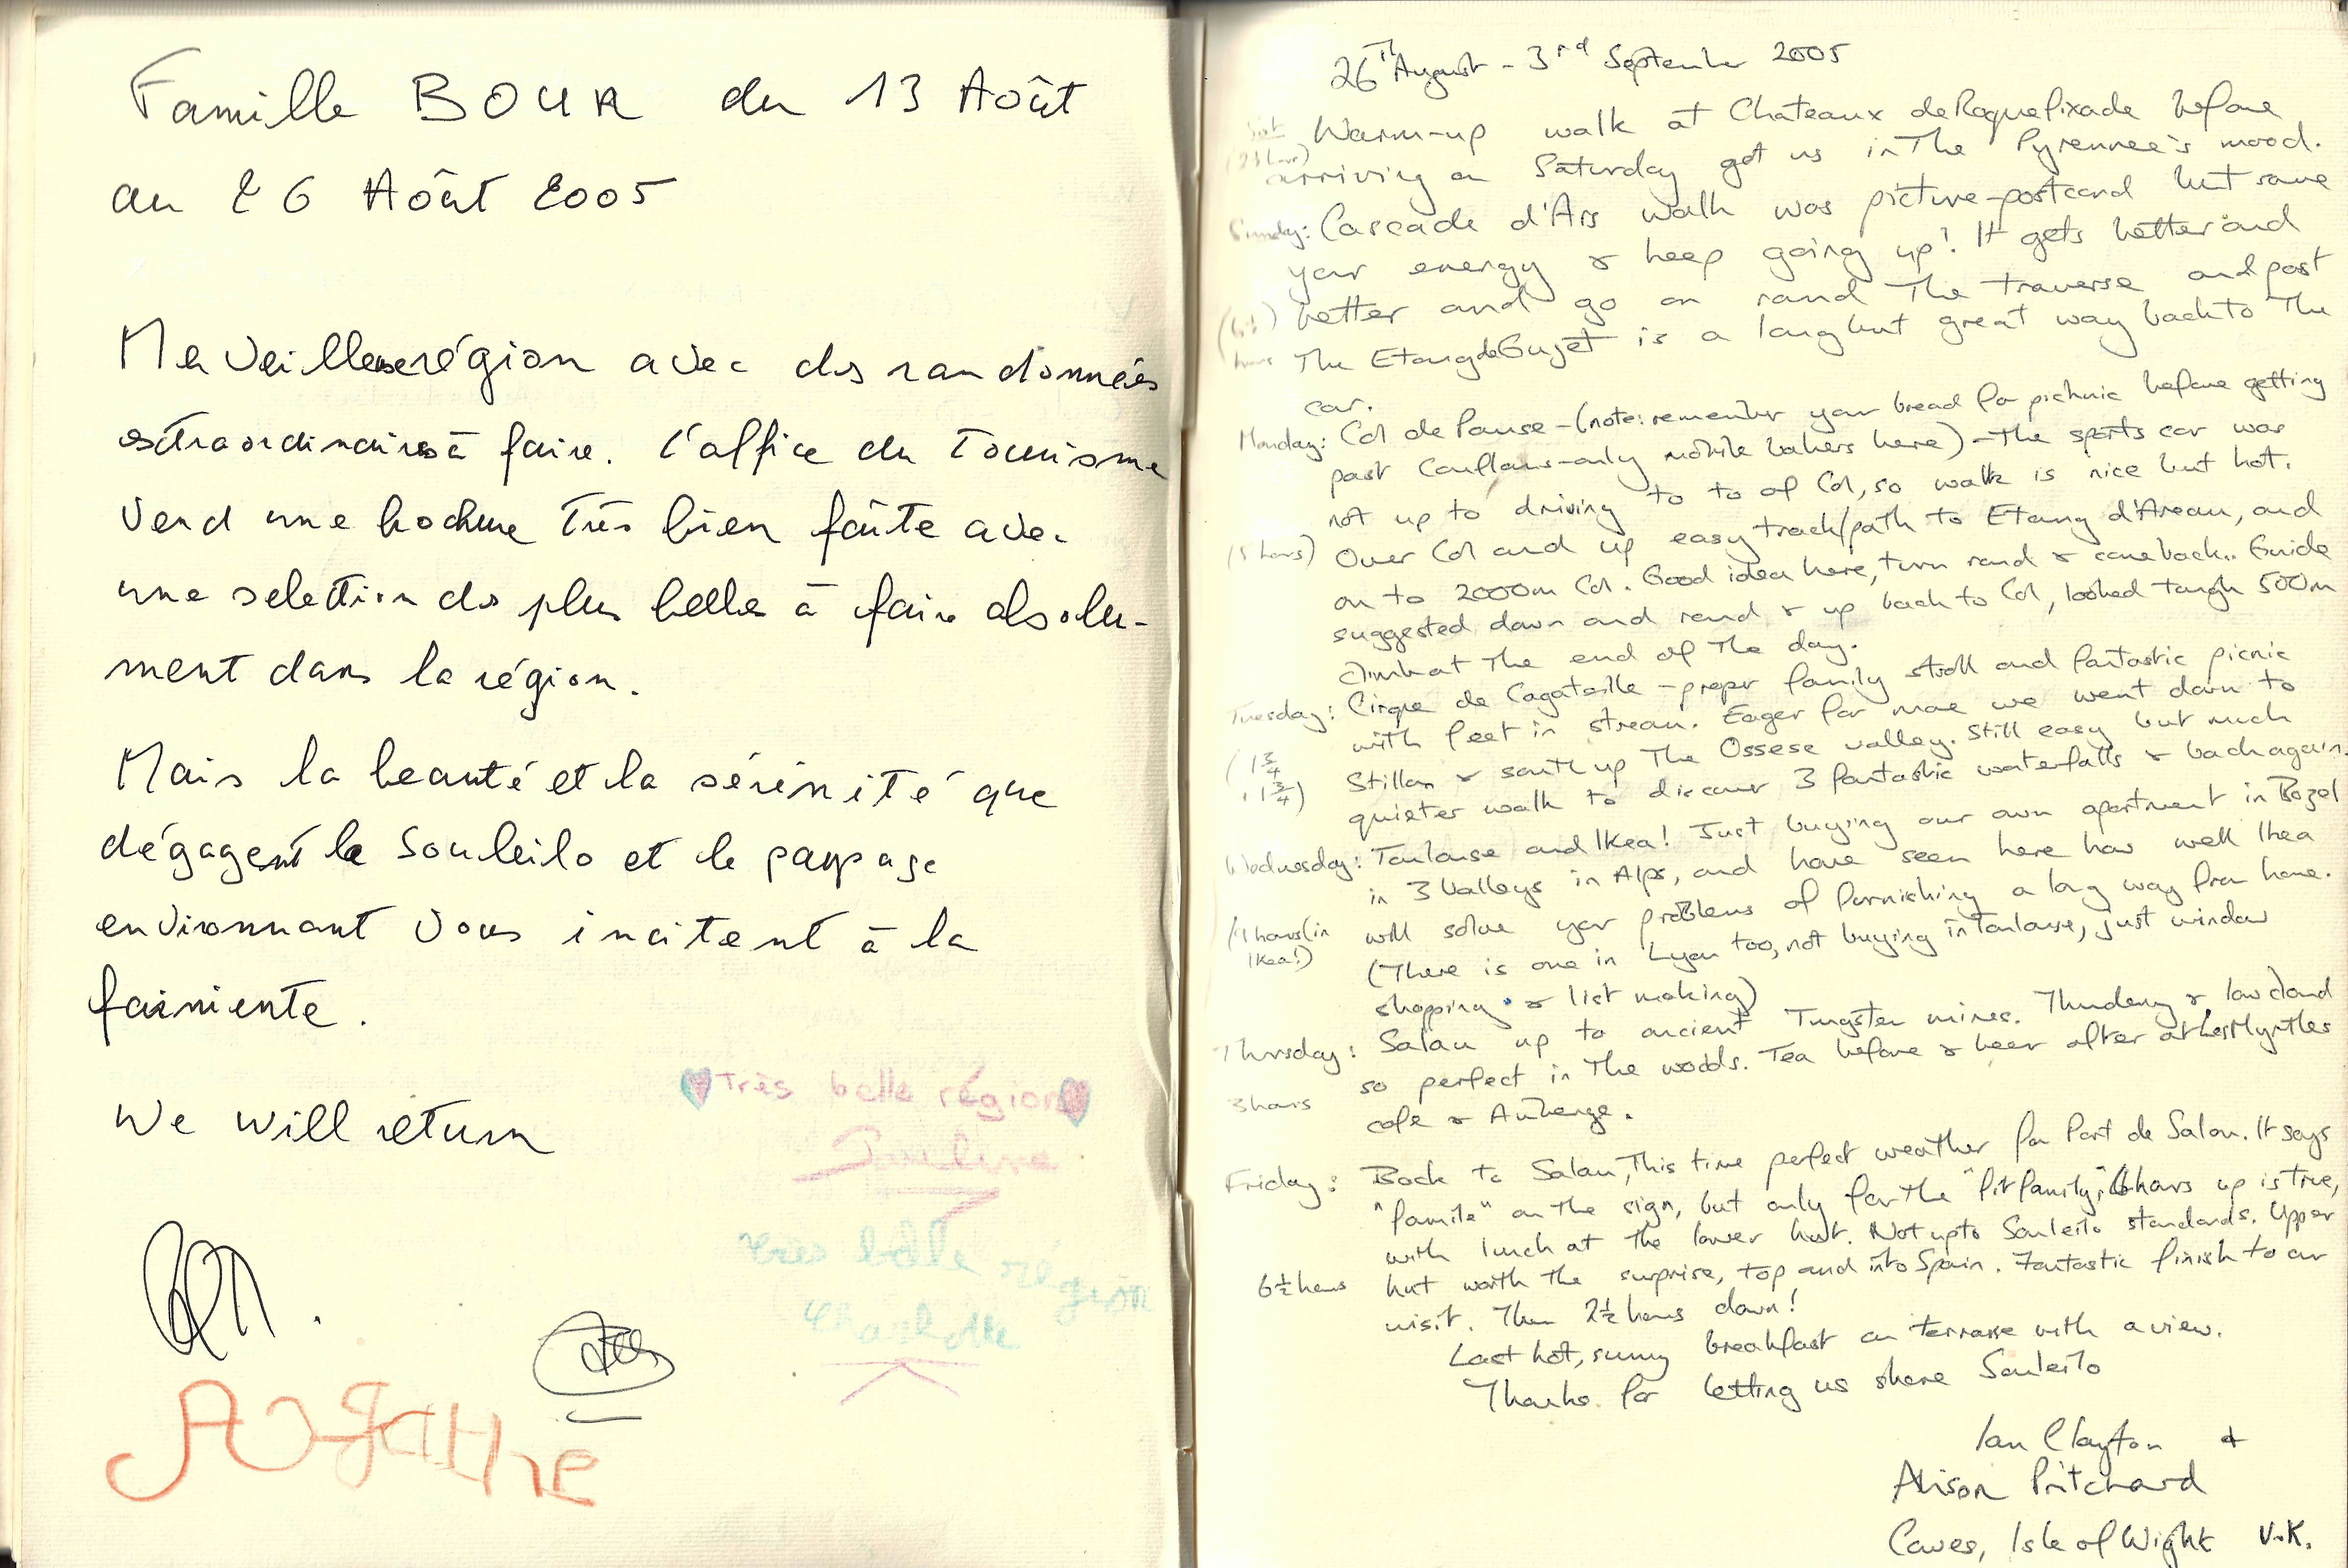 Famille BOUR du 13 Août
au 26 Août 2005
Merveilleuse région avec des randonnées
extraordinaires à faire. L'office du Tourisme
vend une brochure très bien faîte avec
une selection des plus belles à faire absolu-
ment dans la région.
Mais la beauté et la sérénité que
dégagent le Souleilo et le paysage
environnant vous incitent à la
fainiente.
We will return
Très belle région
Pauline
très belle région
Charlotte
AGATHE
26TH August - 3rd September 2005
Sat Warm-up walk at Chateaux de Roquefixade before
arriving on Saturday got us in the Pyrennee's mood.
Sunday: Cascade d'Ars walk was picture-postcard but save
your energy & keep going up! It gets better and
better and go on round the traverse and past
(6½ hours) The Etang de Guzet is a long but great way back to the
car.
Monday: Col de Pause - (note: remember your bread for picknic before getting
past Couflans - only mobile bakers here) - The sports car was
not up to driving to to of Col, so walk is nice but hot.
(5 hours) Over Col and up easy track/path to Etang d'Areau, and
on to 2000m Col. Good idea here, turn round & come back.. Guide
suggested down and round & up back to Col, looked tough 500m
climb at the end of the day.
Tuesday: Cirque de Cagateille - proper family stroll and fantastic picnic
with feet in stream. Eager for more we went down to
(1¾ Stillon & south up The Ossese valley. Still easy but much
1¾) quieter walk to discover 3 fantastic waterfalls & back again.
Wednesday: Toulouse and Ikea! Just buying our own apartment in Bozel
in 3 Valleys in Alps, and have seen here how well Ikea
(4 hours (in will solve your problems of furnishing a long way from home.
Ikea!) (There is one in Lyon too, not buying in Toulouse, just window
shopping & list making)
Thursday: Salau up to ancient Tungsten mines. Thundery & low cloud
so perfect in the woods. Tea before & beer after at Les Myrtles
3 hours cafe & Auberge.
Friday: Back to Salau, This time perfect weather for Port de Salau. It says
"famile" on the sign, but only for the "fit family", 4 hours up is true,
with lunch at the lower hut. Not upto Souleilo standards. Upper
6½ hours hut worth the surprise, top and into Spain. Fantastic finish to our
visit. Then 2½ hours down!
Last hot, sunny breakfast on terrasse with a view.
Thanks for letting us share Souleilo
Ian Clayton +
Alison Pritchard
Cowes, Isle of Wight U.K.